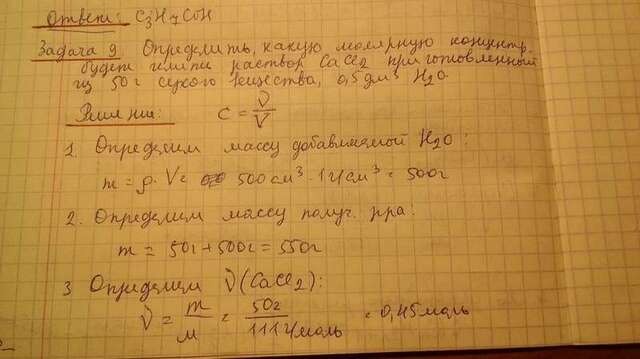 Ответ: C3H7COH
Задача 9 Определить, какую молярную концентр.
будет иметь раствор CaCl2 приготовленный
из 50г сухого вещества, 0,5дм³ H2O.
Решение: C = ν/V
1. Определим массу добавляемой H2O:
m = ρ·V = 500см³ · 1г/см³ = 500г
2. Определим массу получ. р-ра:
m = 50г + 500г = 550г
3 Определим ν(CaCl2):
ν = m/M = 50г/111г/моль = 0,45моль